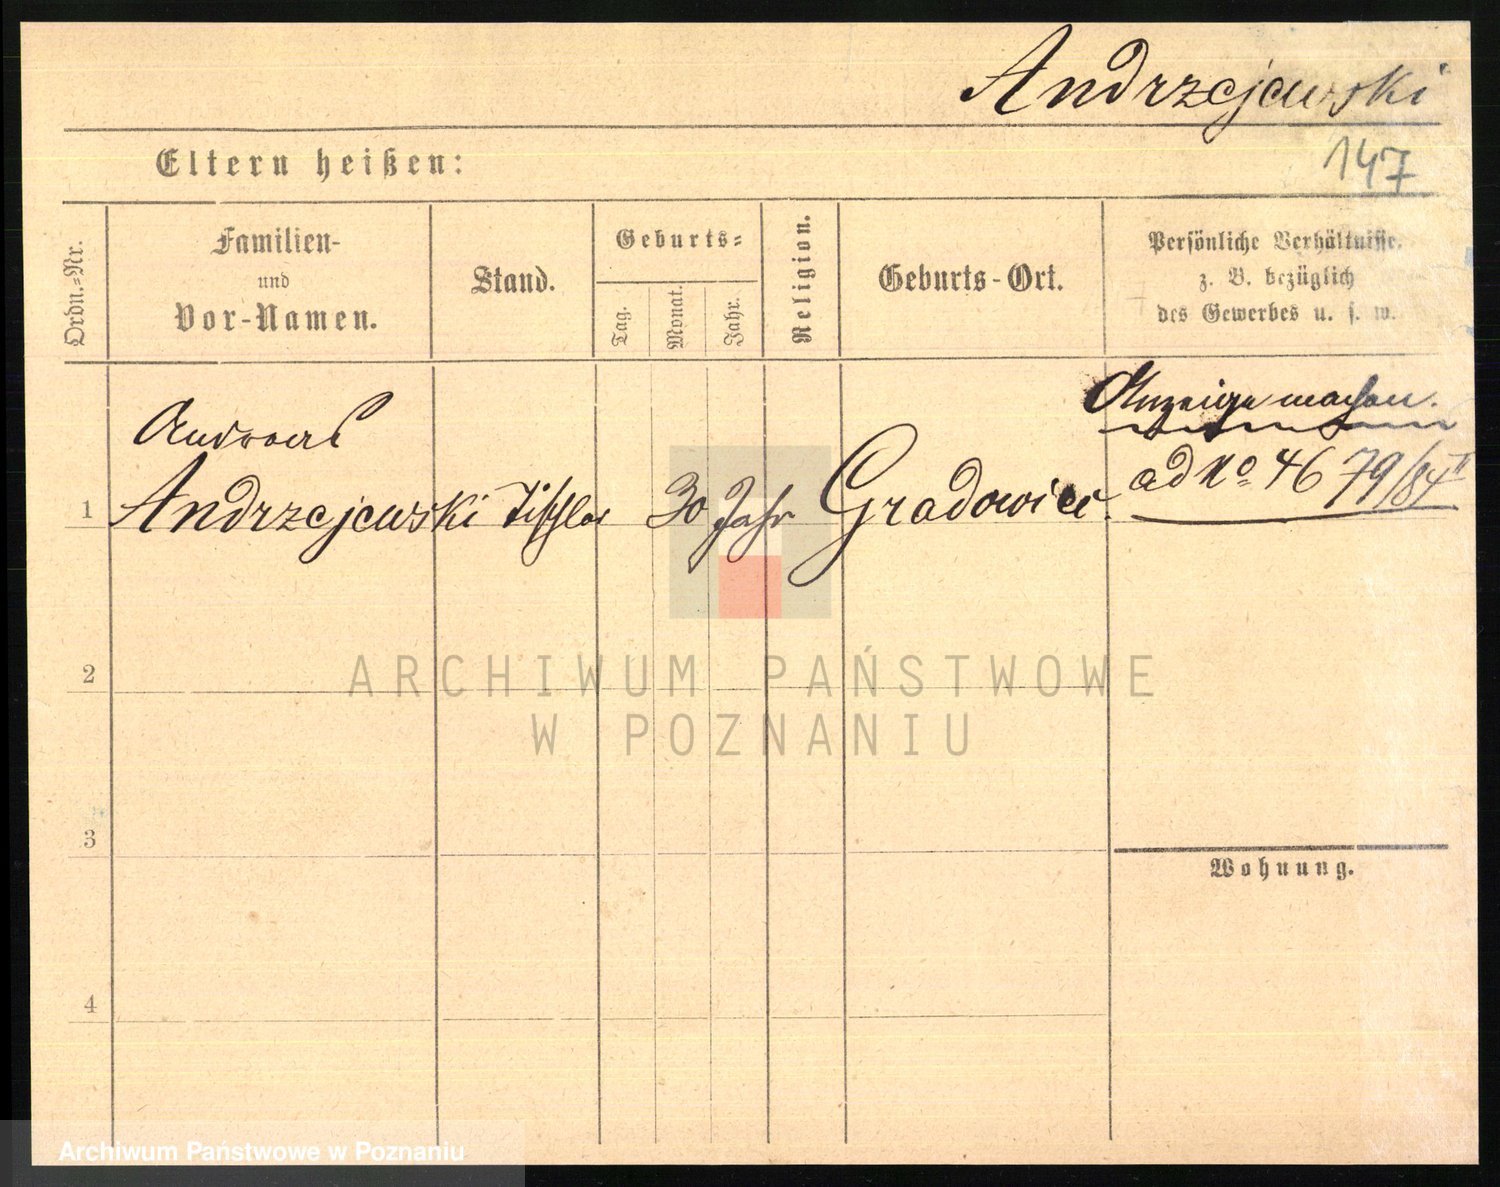 Andrzejewski
147
Eltern heißen:
Ordn.-Nr.
Familien-
und
Vor-Namen.
Stand.
Geburts-
Tag.
Monat.
Jahr.
Religion.
Geburts-Ort.
Persönliche Verhältnisse.
z. B. bezüglich
des Gewerbes u. s. w.
Anzeige machen.
Andreas
ad No 4679/84 II
1 Andrzejewski Tischler 30 Jahr Gradowice
ARCHIWUM PAŃSTWOWE
W POZNANIU
2
3
Wohnung.
4
Archiwum Państwowe w Poznaniu